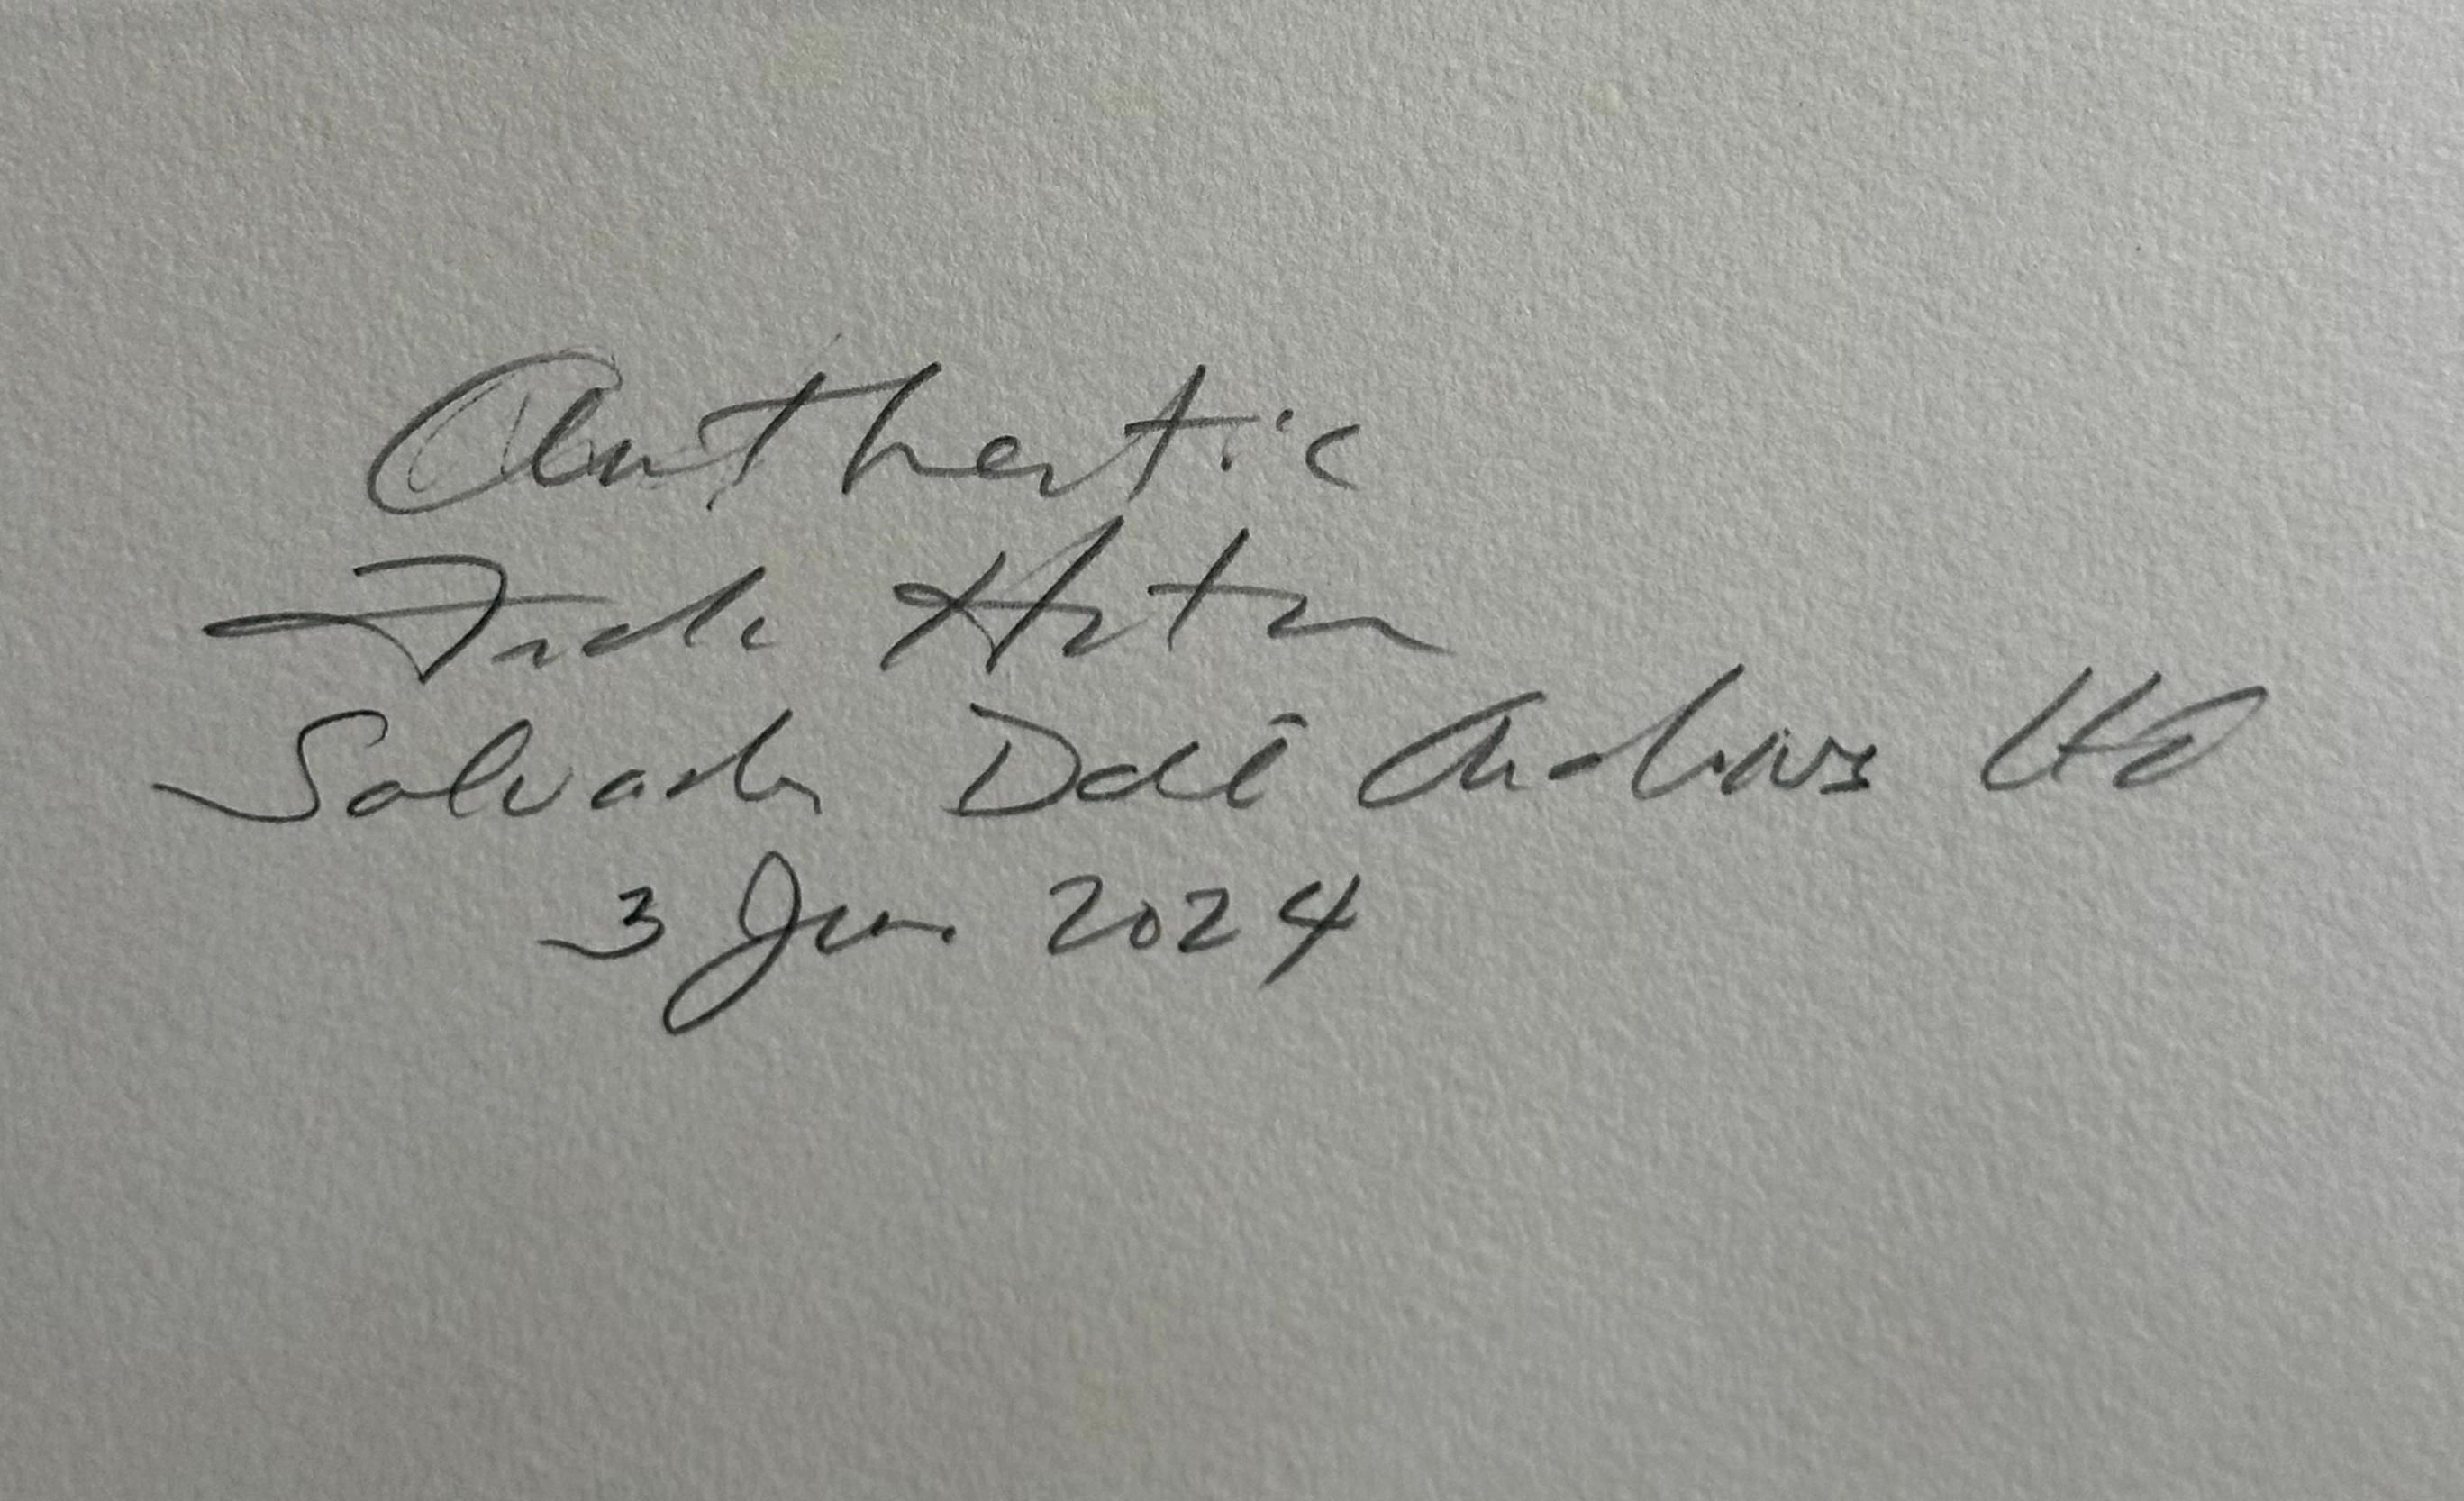 Authentic
Frank Hunter
Salvador Dalí Archives Ltd
3 Jun. 2024